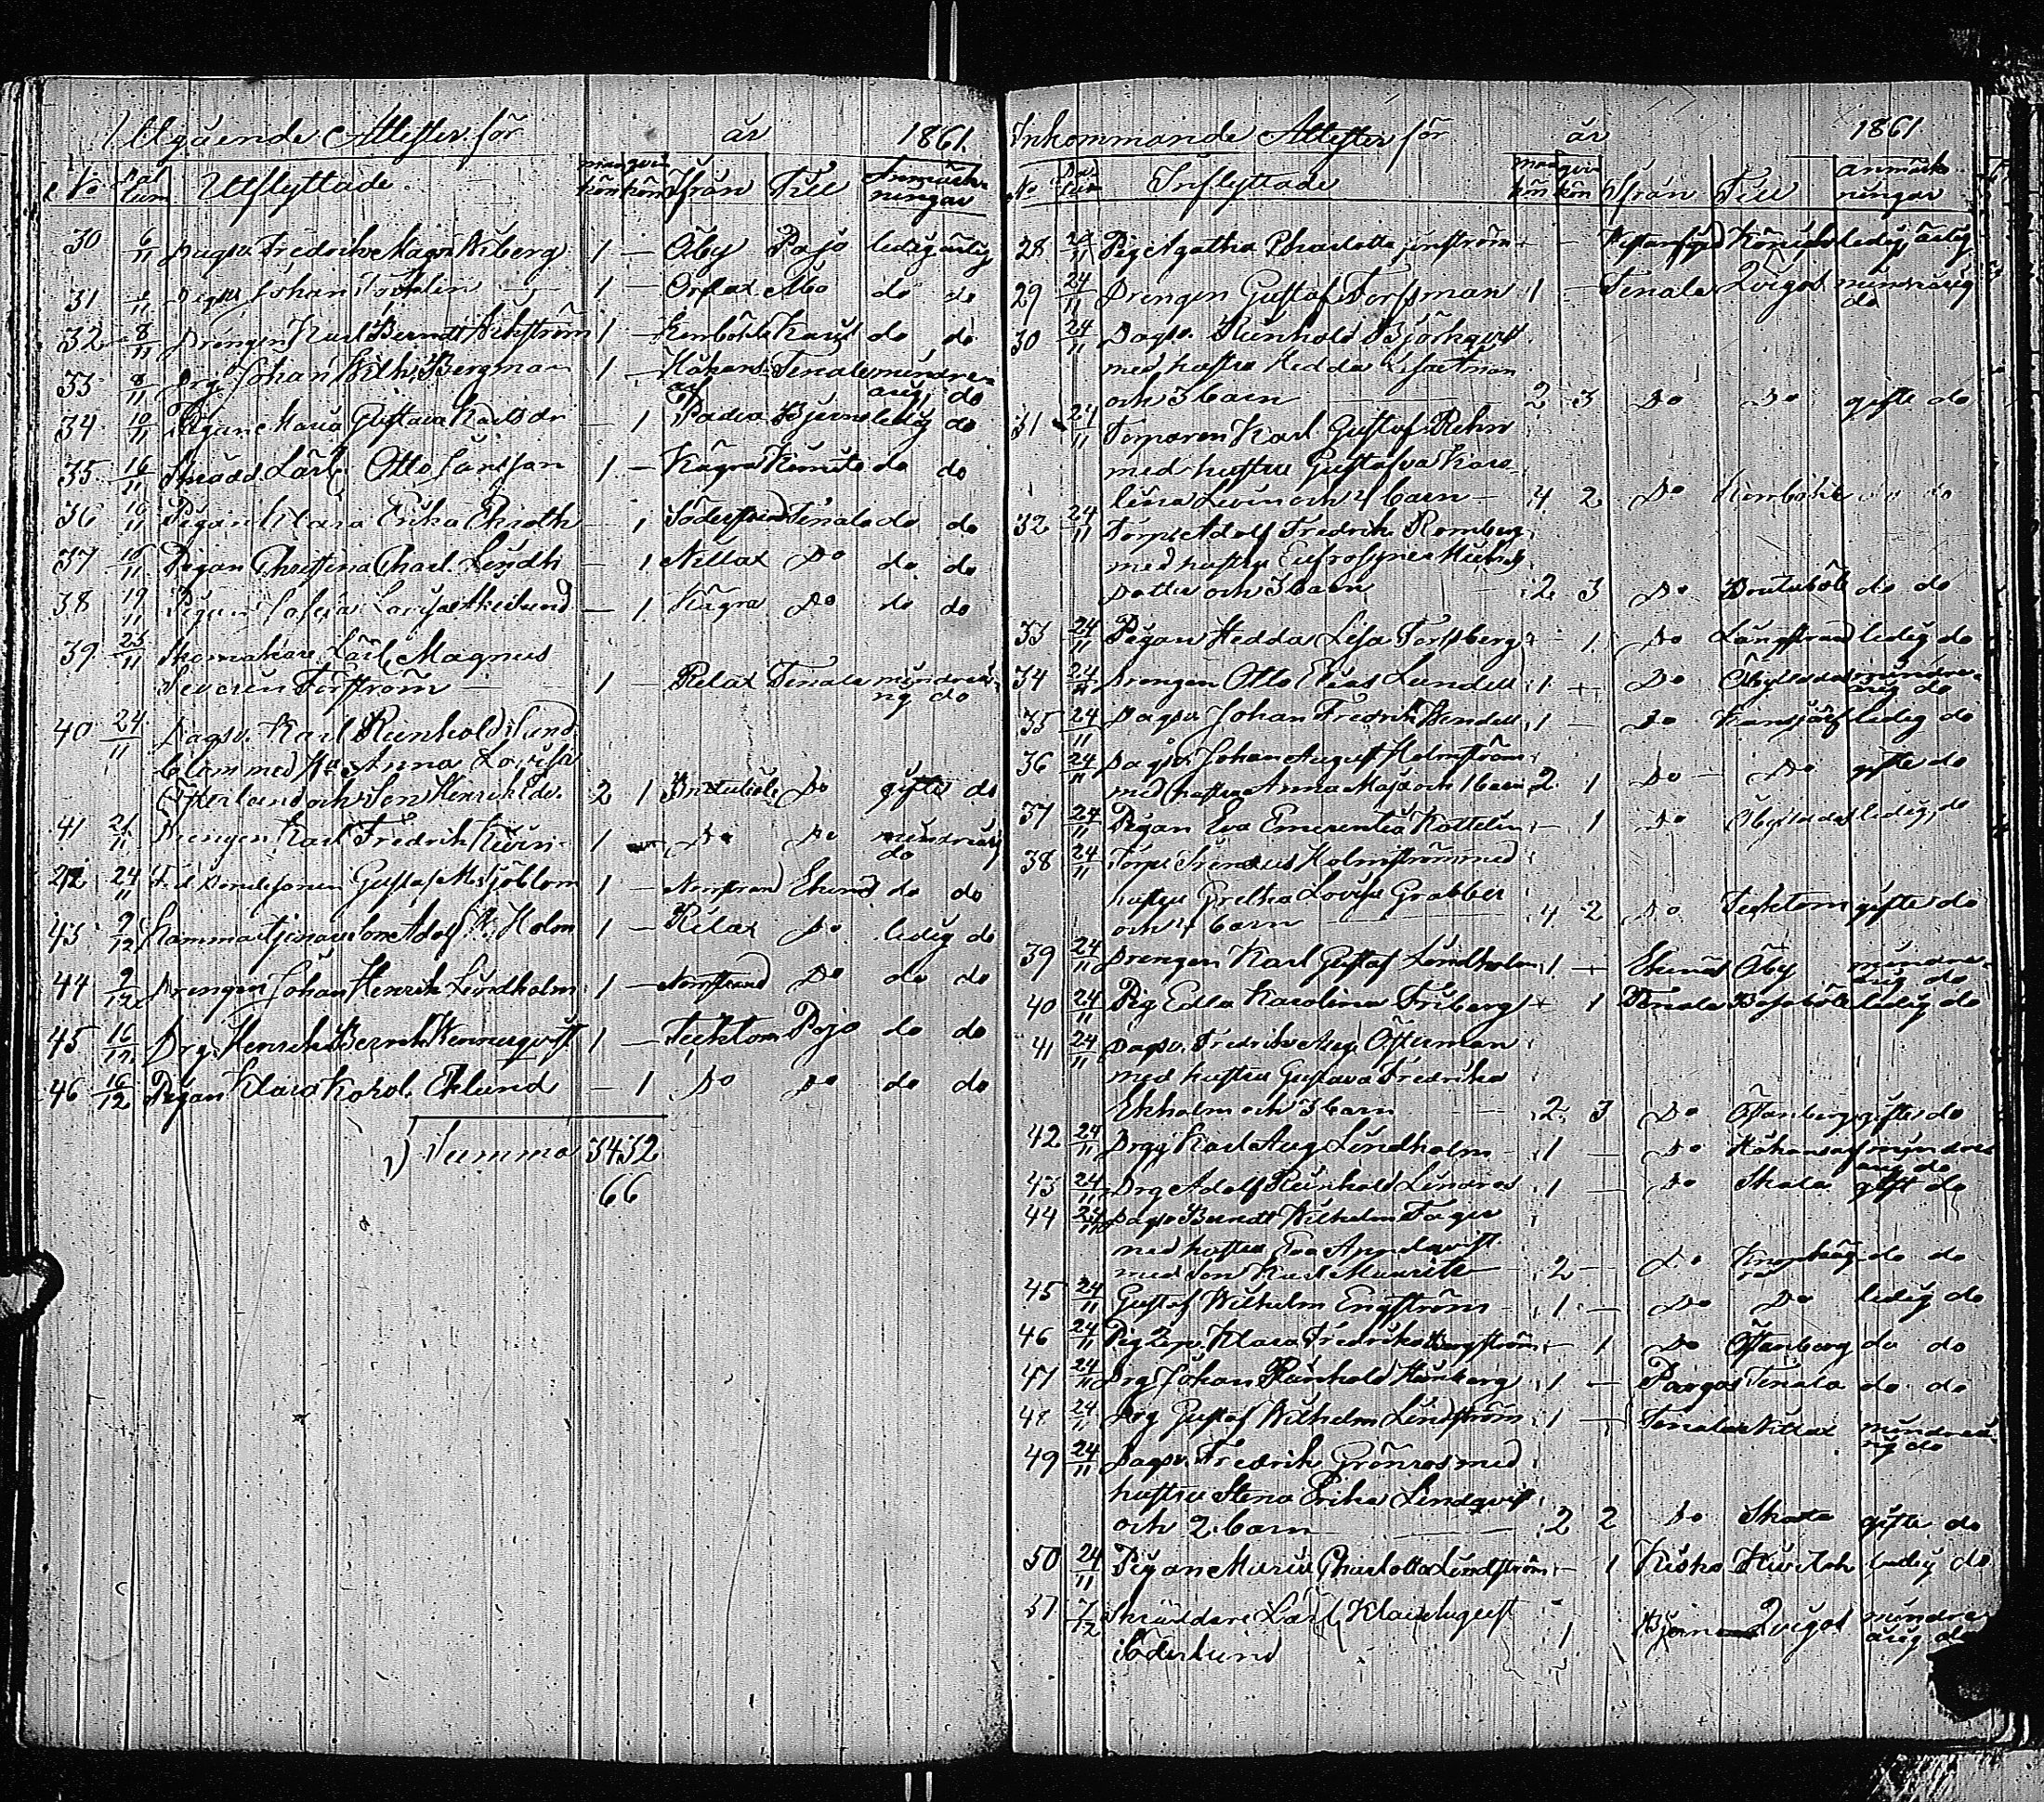 Utgående Attester för år 1861.
No Datum Utflyttade mankön qvinkön Ifrån Till Anmärkningar
30 6/11 Dagsv. Fredrik Magn. Wiberg 1 — Öby Pojo ledig årlig
31 /11 Johan 1 — Åbo do do
32 8/11 Drengen Karl Berndt Wikström 1 — Karis do do
33 8/11 Drg. Johan Wilh. Bergman 1 — Tenala mindre-
årig do
34 10/11 Pigan Maria Gustava Karlsdr — 1 Padva ledig do
35 16/11 Skrädd. Lärl. Otto 1 — Kägra Kimito do do
36 16/11 Pigan Klara Erika Ekroth — 1 Söderstrand Tenala do do
37 16/11 Pigan Christina Charl. Lindh — 1 Nillax Do do do
38 19/11 Pigan Sofia Lovisa — 1 Kägra Do do do
39 25/11 Skomakare Lärl. Magnus
Severin Forström 1 — Relax Tenala mindreå-
rig do
40 24/11 Dagsv. Karl Reinhold Sund-
blom med Hu. Anna Lovisa
Österlund och Son Henrik Edv. 2 1 Do gifte do
41 21/11 Drengen Karl Fredrik 1 — Do Do mindreårig
do
42 24/11 Gustaf M. Sjöblom 1 — Norrstrand Ekenäs do do
43 2/12 Kammartjenaresone Adolf H. Holm 1 — Relax Do ledig do
44 9/12 Drengen Johan Henrik Lindholm 1 — Norrstrand Do do do
45 16/12 Drg. Henrik Bernh. Wennerqvist 1 — Tecktom Pojo do do
46 16/12 Pigan Klara Karol. Eklund — 1 Do Do do do
Summa 34 32
66
Inkommande Attester för år 1861
No Datum Inflyttade mankön qvinkön Ifrån Till anmärkningar
28 24/11 Pig Agatha Charlotta — ledig, årlig
29 24/11 Drengen Gustaf Forssman 1 — Tenala Qvigos mindreårig
do
30 24/11 Dagsv. Reinhold Björkqvist
med hustru Hedda
och 3 barn 2 3 Do Do gifte do
31 24/11 Torparen Karl Gustaf Rehn
med hustru Gustafva Karo-
lina Levin och 4 barn 4 2 Do do
32 24/11 Torp. Adolf Fredrik Romberg
med hustru Eufrosyne
Dotter och 3 barn 2 3 Do do do
33 24/11 Pigan Hedda Lisa Forssberg — 1 Do Långstrand ledig do
34 24/11 Drengen Otto Elias Lundell 1 — Do mindre-
årig do
35 24/11 Dagsv. Johan Fredrik 1 — Do Kansjärf ledig do
36 24/11 Dagsv. Johan August Holmström
med hustru Anna Maja och 1 barn 2 1 Do Do gifte do
37 24/11 Pigan Eva Emerentia Kottelin — 1 Do ledig do
38 24/11 Torp. Holmström med
hustru Gretha Lovisa Grabber
och 4 barn 4 2 Do Tecktom gifte do
39 24/11 Drengen Karl Gustaf Lindholm 1 — Ekenäs Öby mindre-
årig do
40 24/11 Pig Edla Karolina Friberg — 1 Tenala ledig do
41 24/11 Dagsv. Fredrik Aug. Österman
med hustru Gustava Fredrika
Ekholm och 3 barn 2 3 Do Östanberg gifte do
42 24/11 Drg Karl Aug. Lindholm 1 — Do mindre-
årig do
43 24/11 Drg Adolf Reinhold Lindros 1 — Do Skata gift do
44 24/11 Dagsv. Berndt Wilhelm Fager
med hustru Eva
med Son Karl Mauritz 2 — Do do do
45 24/11 Gustaf Wilhelm Engström 1 — Do Do ledig do
46 24/11 Pig Klara Fredrika Bergström — 1 Do Östanberg do do
47 24/11 Drg Johan Reinhold 1 — Pargas Tenala do do
48 24/11 Drg Gustaf Wilhelm Lindström 1 — Tenala Nillax mindreå-
rig do
49 24/11 Dagsv. Fredrik Grönros med
hustru Stena Erika Lindqvist
och 2 barn 2 2 Do Skata gifte do
50 24/11 Pigan Maria Charlotta Lindström — 1 Kisko ledig do
51 7/12 Skräddare Lärl. Klas August
Söderlund 1 Qvigos mindre-
årig do